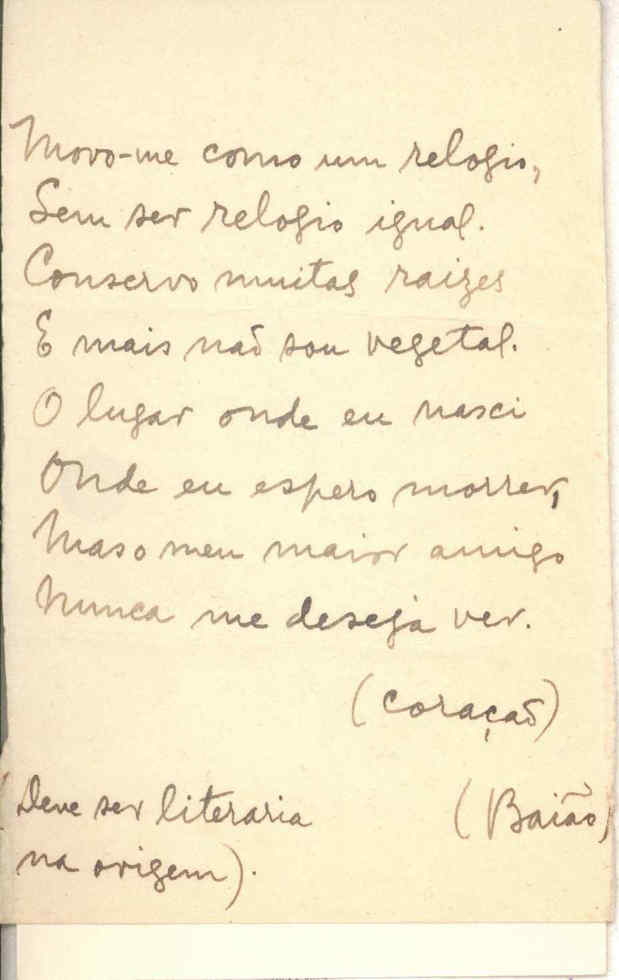 Movo-me como um relogio,
Sem ser relogio igual.
Conservo muitas raizes
E mais naõ sou vegetal.
O lugar onde eu nasci
Onde eu espero morrer,
Mas o meu maior amigo
Nunca me deseja ver.
(Coraçaõ)
Deve ser literaria (Baião)
na origem).